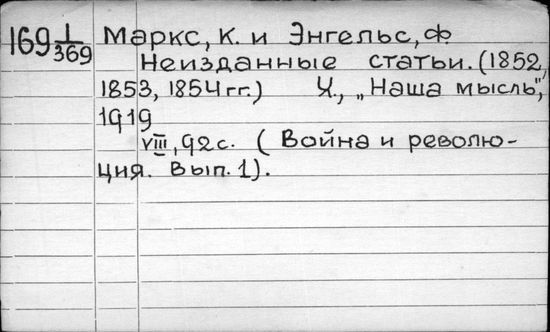 169 1/369 Маркс, К. и Энгельс, Ф
Неизданные статьи. (1852,
1853, 1854 гг.) Х., „Наша мысль",
1919
VIII, 92 с. ( Война и револю-
ция. Вып. 1).